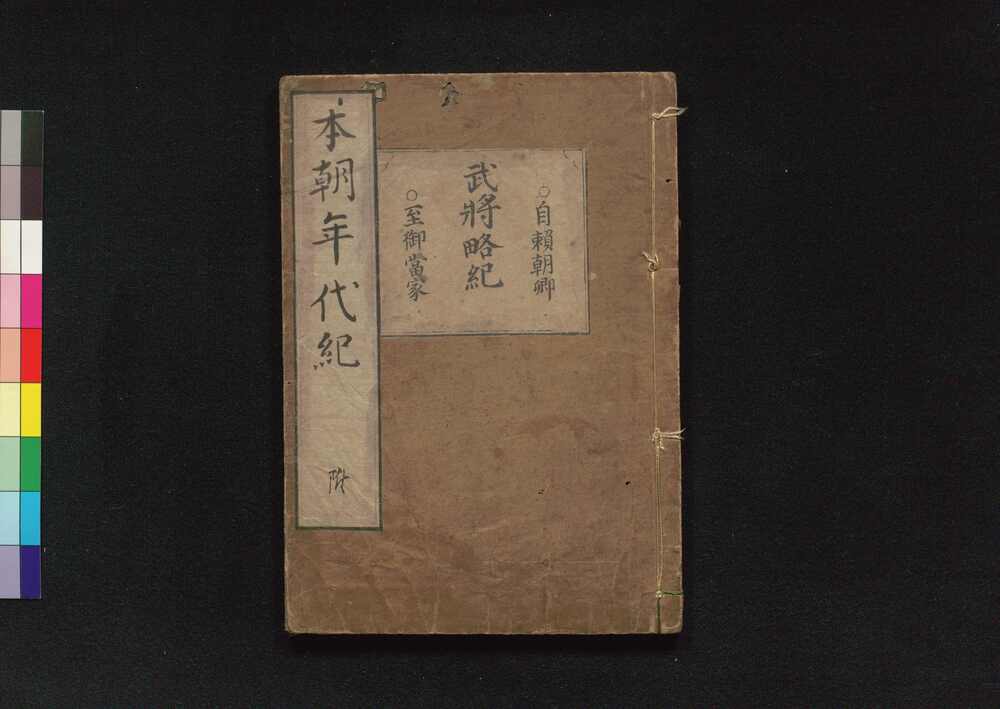 ○自賴朝卿
武將略紀
○至御當家
本朝年代紀
附